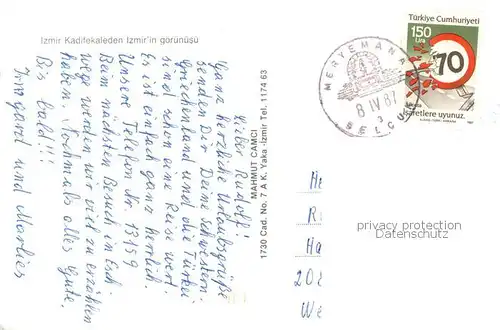 Izmir Kadifekaleden İzmir'in görünüşü
Lieber Rudolf!
Ganz herzliche Urlaubsgrüße
senden Dir Deine Schwestern.
Griechenland und die Türkei
sind schon eine Reise wert.
Es ist einfach ganz herrlich.
Unsere Telefon Nr. 13159
Beim nächsten Besuch in Esch
wege werden wir viel zu erzählen
haben. Nochmals alles Gute.
Bis bald!!!
Irmgard und Marlies
MAHMUT CAMCI
1730 Cad. No. 7 A K. Yaka-İzmir Tel. 11 74 63
MERYEMANA
8 IV 87
3
SELÇUK
Türkiye Cumhuriyeti
150
Lira
70
işaretlere uyunuz.
1987
privacy protection
Datenschutz
He
R
Ha
208
We